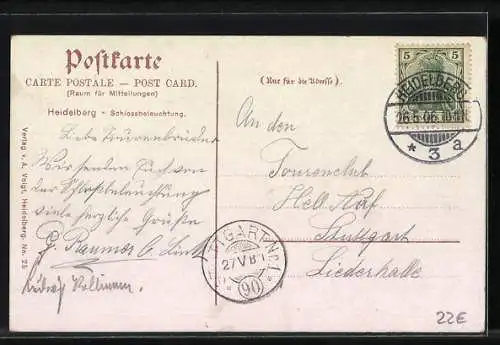 Postkarte
CARTE POSTALE — POST CARD.
(Raum für Mitteilungen)
(Nur für die Adresse)
Heidelberg - Schlossbeleuchtung.
5 5
HEIDELBERG
26.5.06.10-11
* 3 a
Liebe Tourenbrüder
Wir senden Euch von
der Schlossbeleuchtung
viele herzliche Grüße
G.
Ludwig
Verlag v. A. Voigt, Heidelberg. No. 25
An den
Tourenclub
Hell Auf
Stuttgart
Liederhalle
STUTTGART No. 1
27 V 8-
90
22€